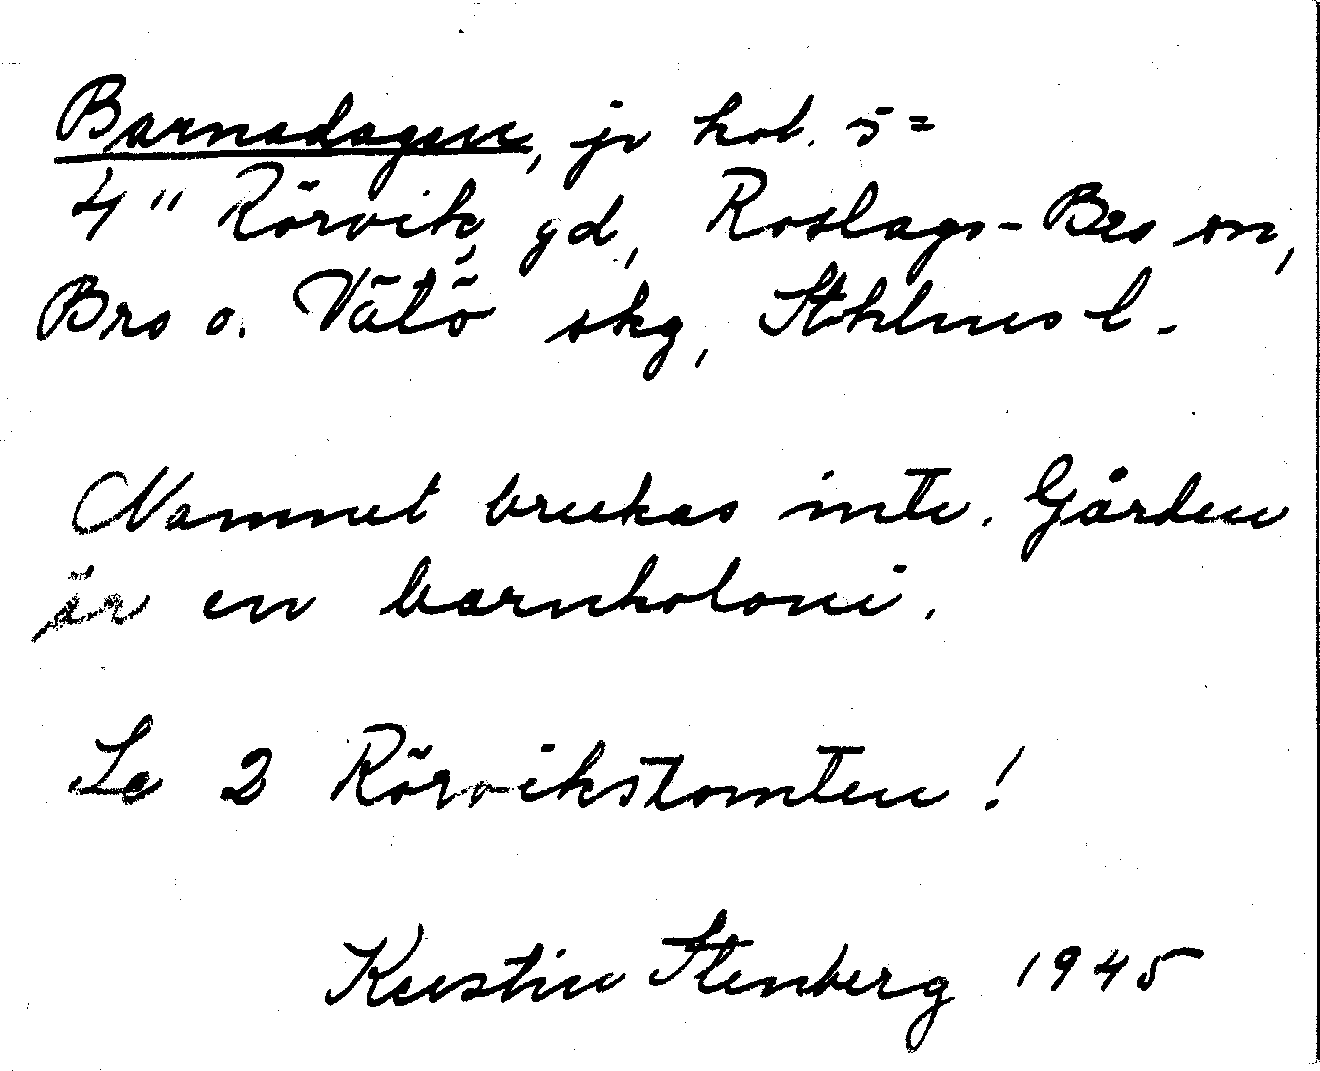 Barnadagen, jr kol. 5=
4" Rörvik, gd, Roslags-Bro sn,
Bro o. Vätö skg, Sthlms l.
Namnet brukas inte. Gården
är en barnkoloni.
Se 2 Rörvikstomten!
Kerstin Stenberg 1945